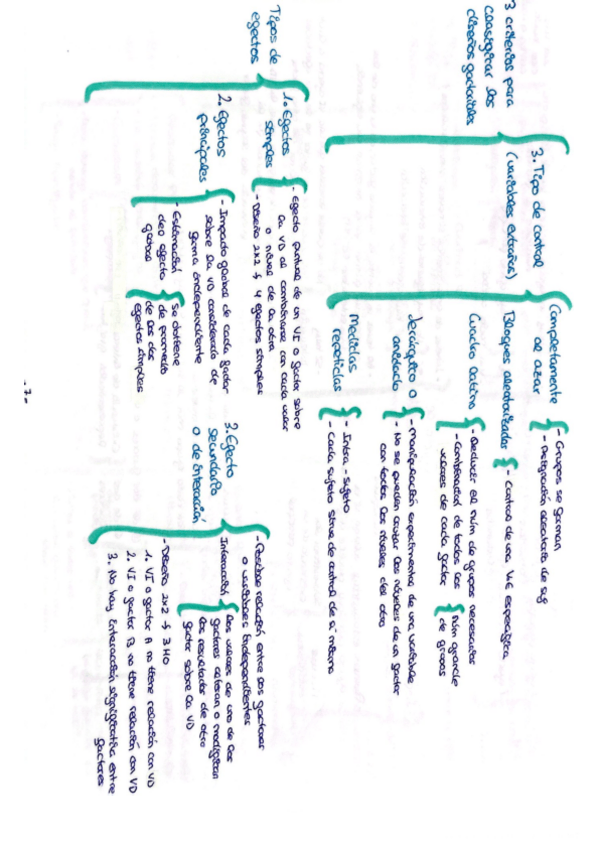 3 criterios para
clasificar los
diseños factoriales
3. Tipo de control
(variables extrañas)
Completamente
al azar
- Grupos se forman
- Asignación aleatoria de suj
Bloques aleatorizados
- Control de una VE específica
Cuadro latino
- Reducir el núm de grupos necesarios
- Combinación de todos los
valores de cada factor
Núm grande
de grupos
Jerárquico o
anidado
- Manipulación experimental de una variable
- No se pueden cruzar los niveles de un factor
con todos los niveles del otro
Medidas
repetidas
- Intra-sujeto
- Cada sujeto sirve de control de sí mismo
Tipos de
efectos
1. Efectos
simples
- Efecto puntual de un VI o factor sobre
la VD al combinarse con cada valor
o nivel de la otra
- Diseño 2x2 → 4 efectos simples
2. Efectos
principales
- Impacto global de cada factor
sobre la VD considerado de
forma independiente
- Estimación
del efecto
global
se obtiene
de promedio
de los dos
efectos simples
3. Efecto
secundario
o de interacción
- Posible relación entre dos factores
o variables independientes
Interacción
Los valores de uno de los
factores alteran o modifican
los resultados de otro
factor sobre la VD
- Diseño 2x2 → 3 H0
1. VI o factor A no tiene relación con VD
2. VI o factor B no tiene relación con VD
3. No hay interacción significativa entre
factores
-7-